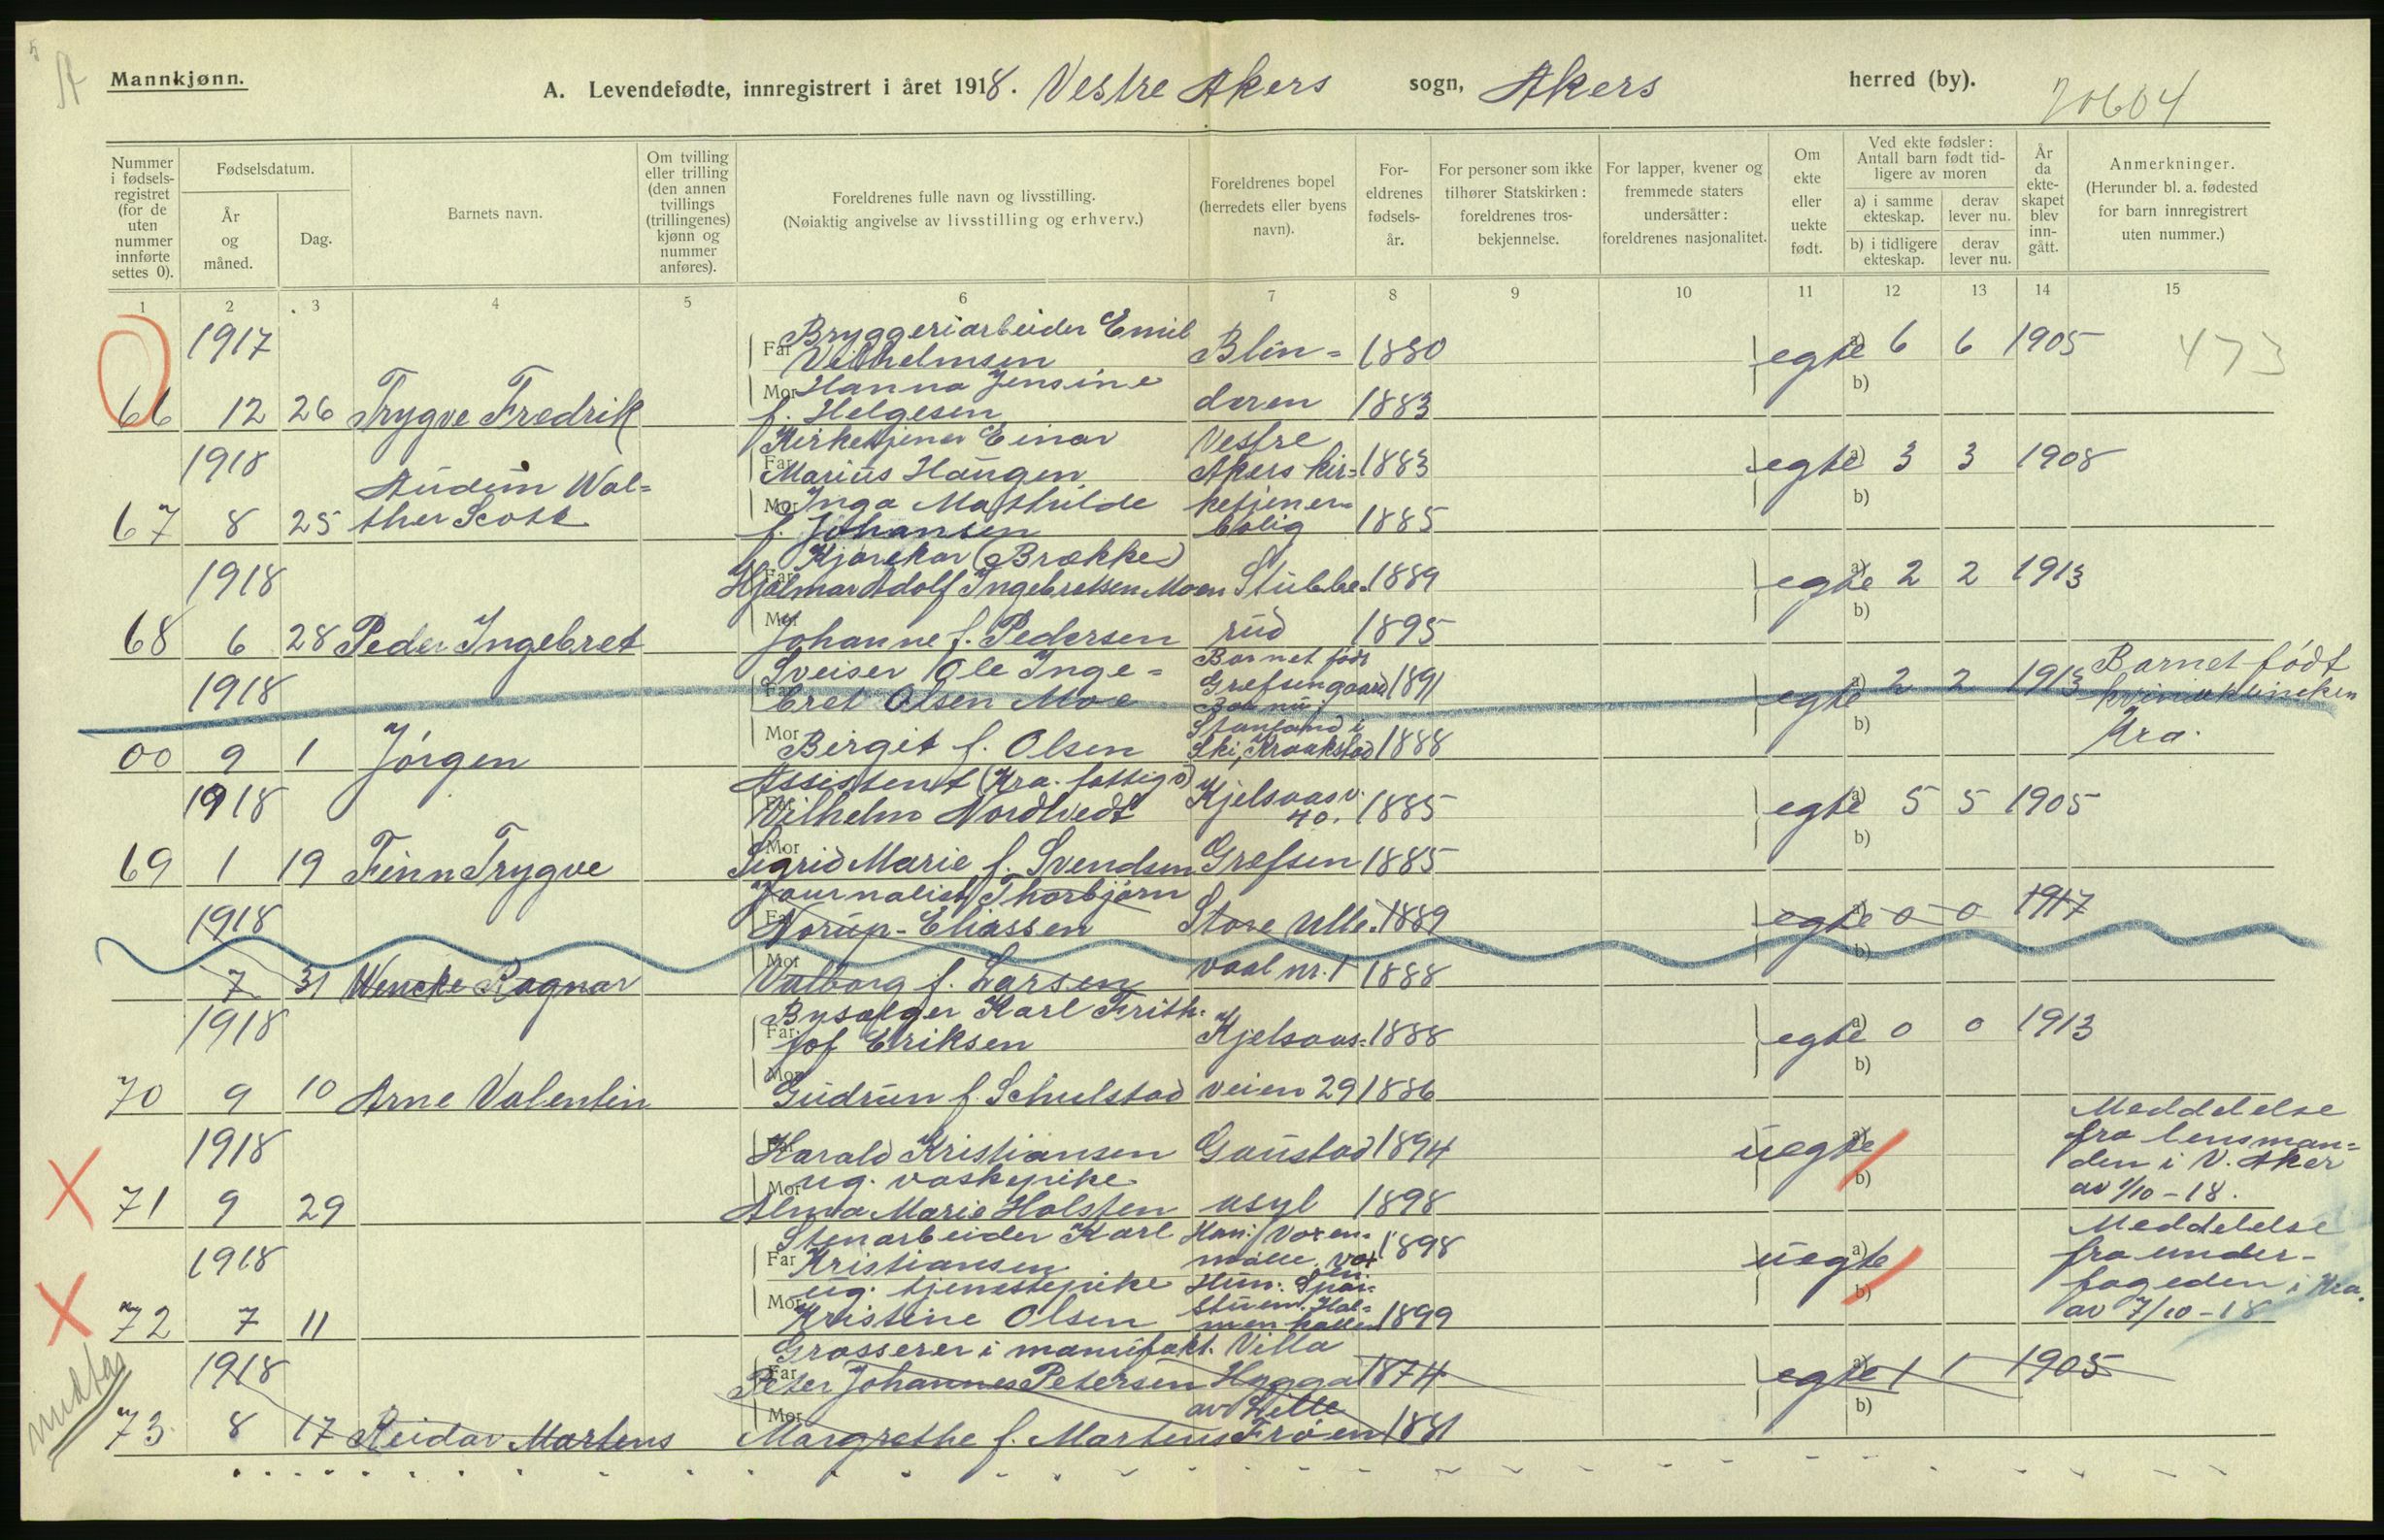 Mannkjønn.
A. Levendefødte, innregistrert i året 1918. Vestre Akers sogn, Akers herred (by). 20604
Nummer i fødsels- registret (for de uten nummer innførte settes 0).
Fødselsdatum.
År og måned.
Dag.
Barnets navn.
Om tvilling eller trilling (den annen tvillings (trillingenes) kjønn og nummer anføres).
Foreldrenes fulle navn og livsstilling. (Nøiaktig angivelse av livsstilling og erhverv.)
Foreldrenes bopel (herredets eller byens navn).
For- eldrenes fødsels- år.
For personer som ikke tilhører Statskirken: foreldrenes tros- bekjennelse.
For lapper, kvener og fremmede staters undersåtter: foreldrenes nasjonalitet.
Om ekte eller uekte født.
Ved ekte fødsler: Antall barn født tid- ligere av moren
a) i samme ekteskap.
derav lever nu.
b) i tidligere ekteskap.
derav lever nu.
År da ekte- skapet blev inn- gått.
Anmerkninger. (Herunder bl. a. fødested for barn innregistrert uten nummer.)
1 2 3 4 5 6 7 8 9 10 11 12 13 14 15
Bryggeriarbeider Emil
1917 Far Vilhelmsen Blin= 1880 egte a) 6 6 1905 473
Mor Hanna Jensine b)
66 12 26 Trygve Fredrik f. Helgesen deren 1883
Kirketjener Einar Vestre
1918 Far Marius Haugen Akers kir= 1883 egte a) 3 3 1908
Audun Wal= Mor Inga Mathilde ketjener= b)
67 8 25 ther Scott f. Johansen bolig 1885
Kjørekar (Brække)
1918 Far Hjalmar Adolf Ingebretsen Moen Stubbe= 1889 egte a) 2 2 1913
Mor b)
68 6 28 Peder Ingebret Johanne f. Pedersen rud 1895
Sveiser Ole Inge= Barnet født Barnet født
1918 Far bret Olsen Moe Grefsengaard 1891 egte a) 2 2 1913 kvindeklineken
Bor nu: Kra.
Mor Stenland i b)
00 9 1 Jørgen Birgit f. Olsen Ski, Kraakstad 1888
Assistent (Kra. fattigv) Kjelsaasv.
1918 Far Vilhelm Nordtvedt 40. 1885 egte a) 5 5 1905
Mor b)
69 1 19 Finn Trygve Sigrid Marie f. Svendsen Grefsen 1885
Journalist Thorbjørn
1918 Far Norup-Eliassen Store Ulle= 1889 egte a) 0 0 1917
Mor b)
7 31 Wencke Ragnar Valborg f. Larsen vaal nr. 1 1888
Bysælger Karl Frith=
1918 Far jof Eriksen Kjelsaas= 1888 egte a) 0 0 1913
Mor b)
70 9 10 Arne Valentin Gudrun f. Schulstad veien 29 1886
1918 Far Harald Kristiansen Gaustad 1894 uegte a) Meddelelse
Mor ug. vaskepike b) fra lensman=
71 9 29 Alma Marie Holsten asyl 1898 den i V. Aker
av 1/10-18.
Stenarbeider Karl Han: Voxen=
1918 Far Kristiansen 1898 uegte a) Meddelelse
Mor ug. tjenestepike b) fra under=
72 7 11 Kristine Olsen 1899 fogeden i Kra.
av 7/10-18
Grosserer i manufakt. Villa
1918 Far Peter Johannes Petersen Hygga 1874 egte a) 1 1 1905
Mor av Lille b)
73 8 17 Reidar Martens Margrethe f. Martens Frøen 1881